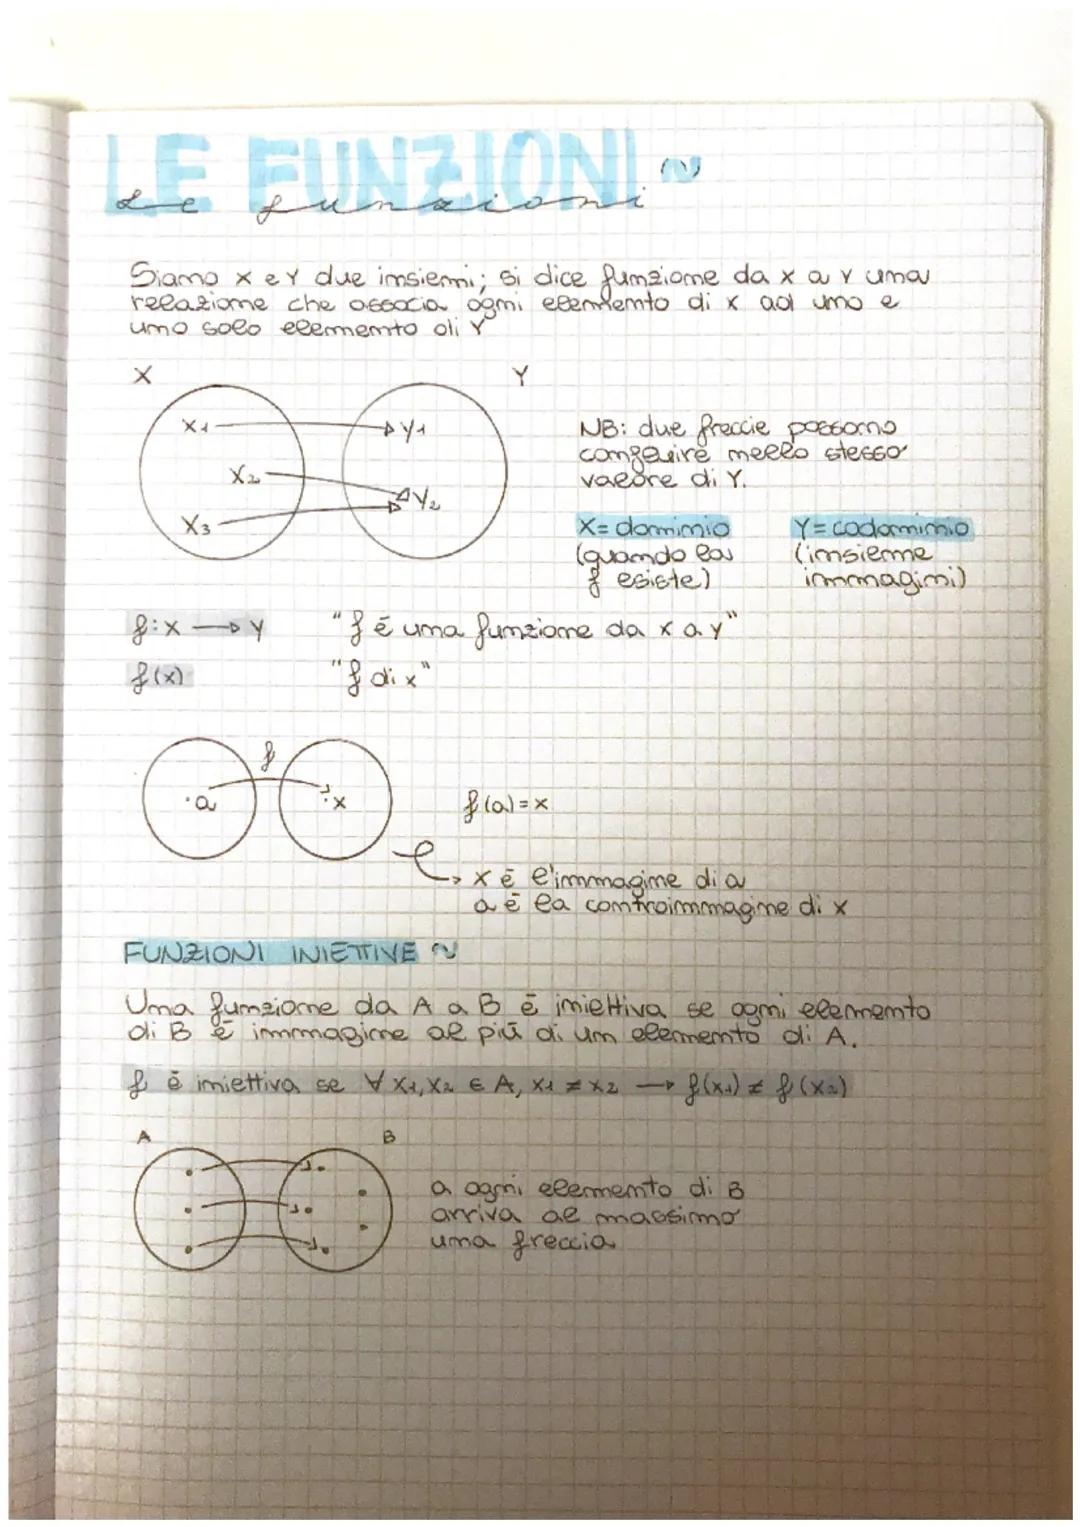 LE FUNZIONI ~
Le funzioni
Siano X e Y due insiemi; si dice funzione da X a Y una
relazione che associa ogni elemento di X ad uno e
uno solo elemento di Y
X
Y
X1
Y1
X2
Y2
X3
NB: due freccie possono
confluire nello stesso
valore di Y.
X= dominio
(quando la
f esiste)
Y= codominio
(insieme
immagini)
f: X → Y
"f é una funzione da X a Y"
f(x)
"f di x"
f
·a
·x
f(a)=x
x é l'immagine di a
a é la controimmagine di x
FUNZIONI INIETTIVE ~
Una funzione da A a B é iniettiva se ogni elemento
di B é immagine al piú di un elemento di A.
f é iniettiva se ∀ X1, X2 ∈ A, X1 ≠ X2 → f(X1) ≠ f(X2)
A
B
a ogni elemento di B
arriva al massimo
una freccia